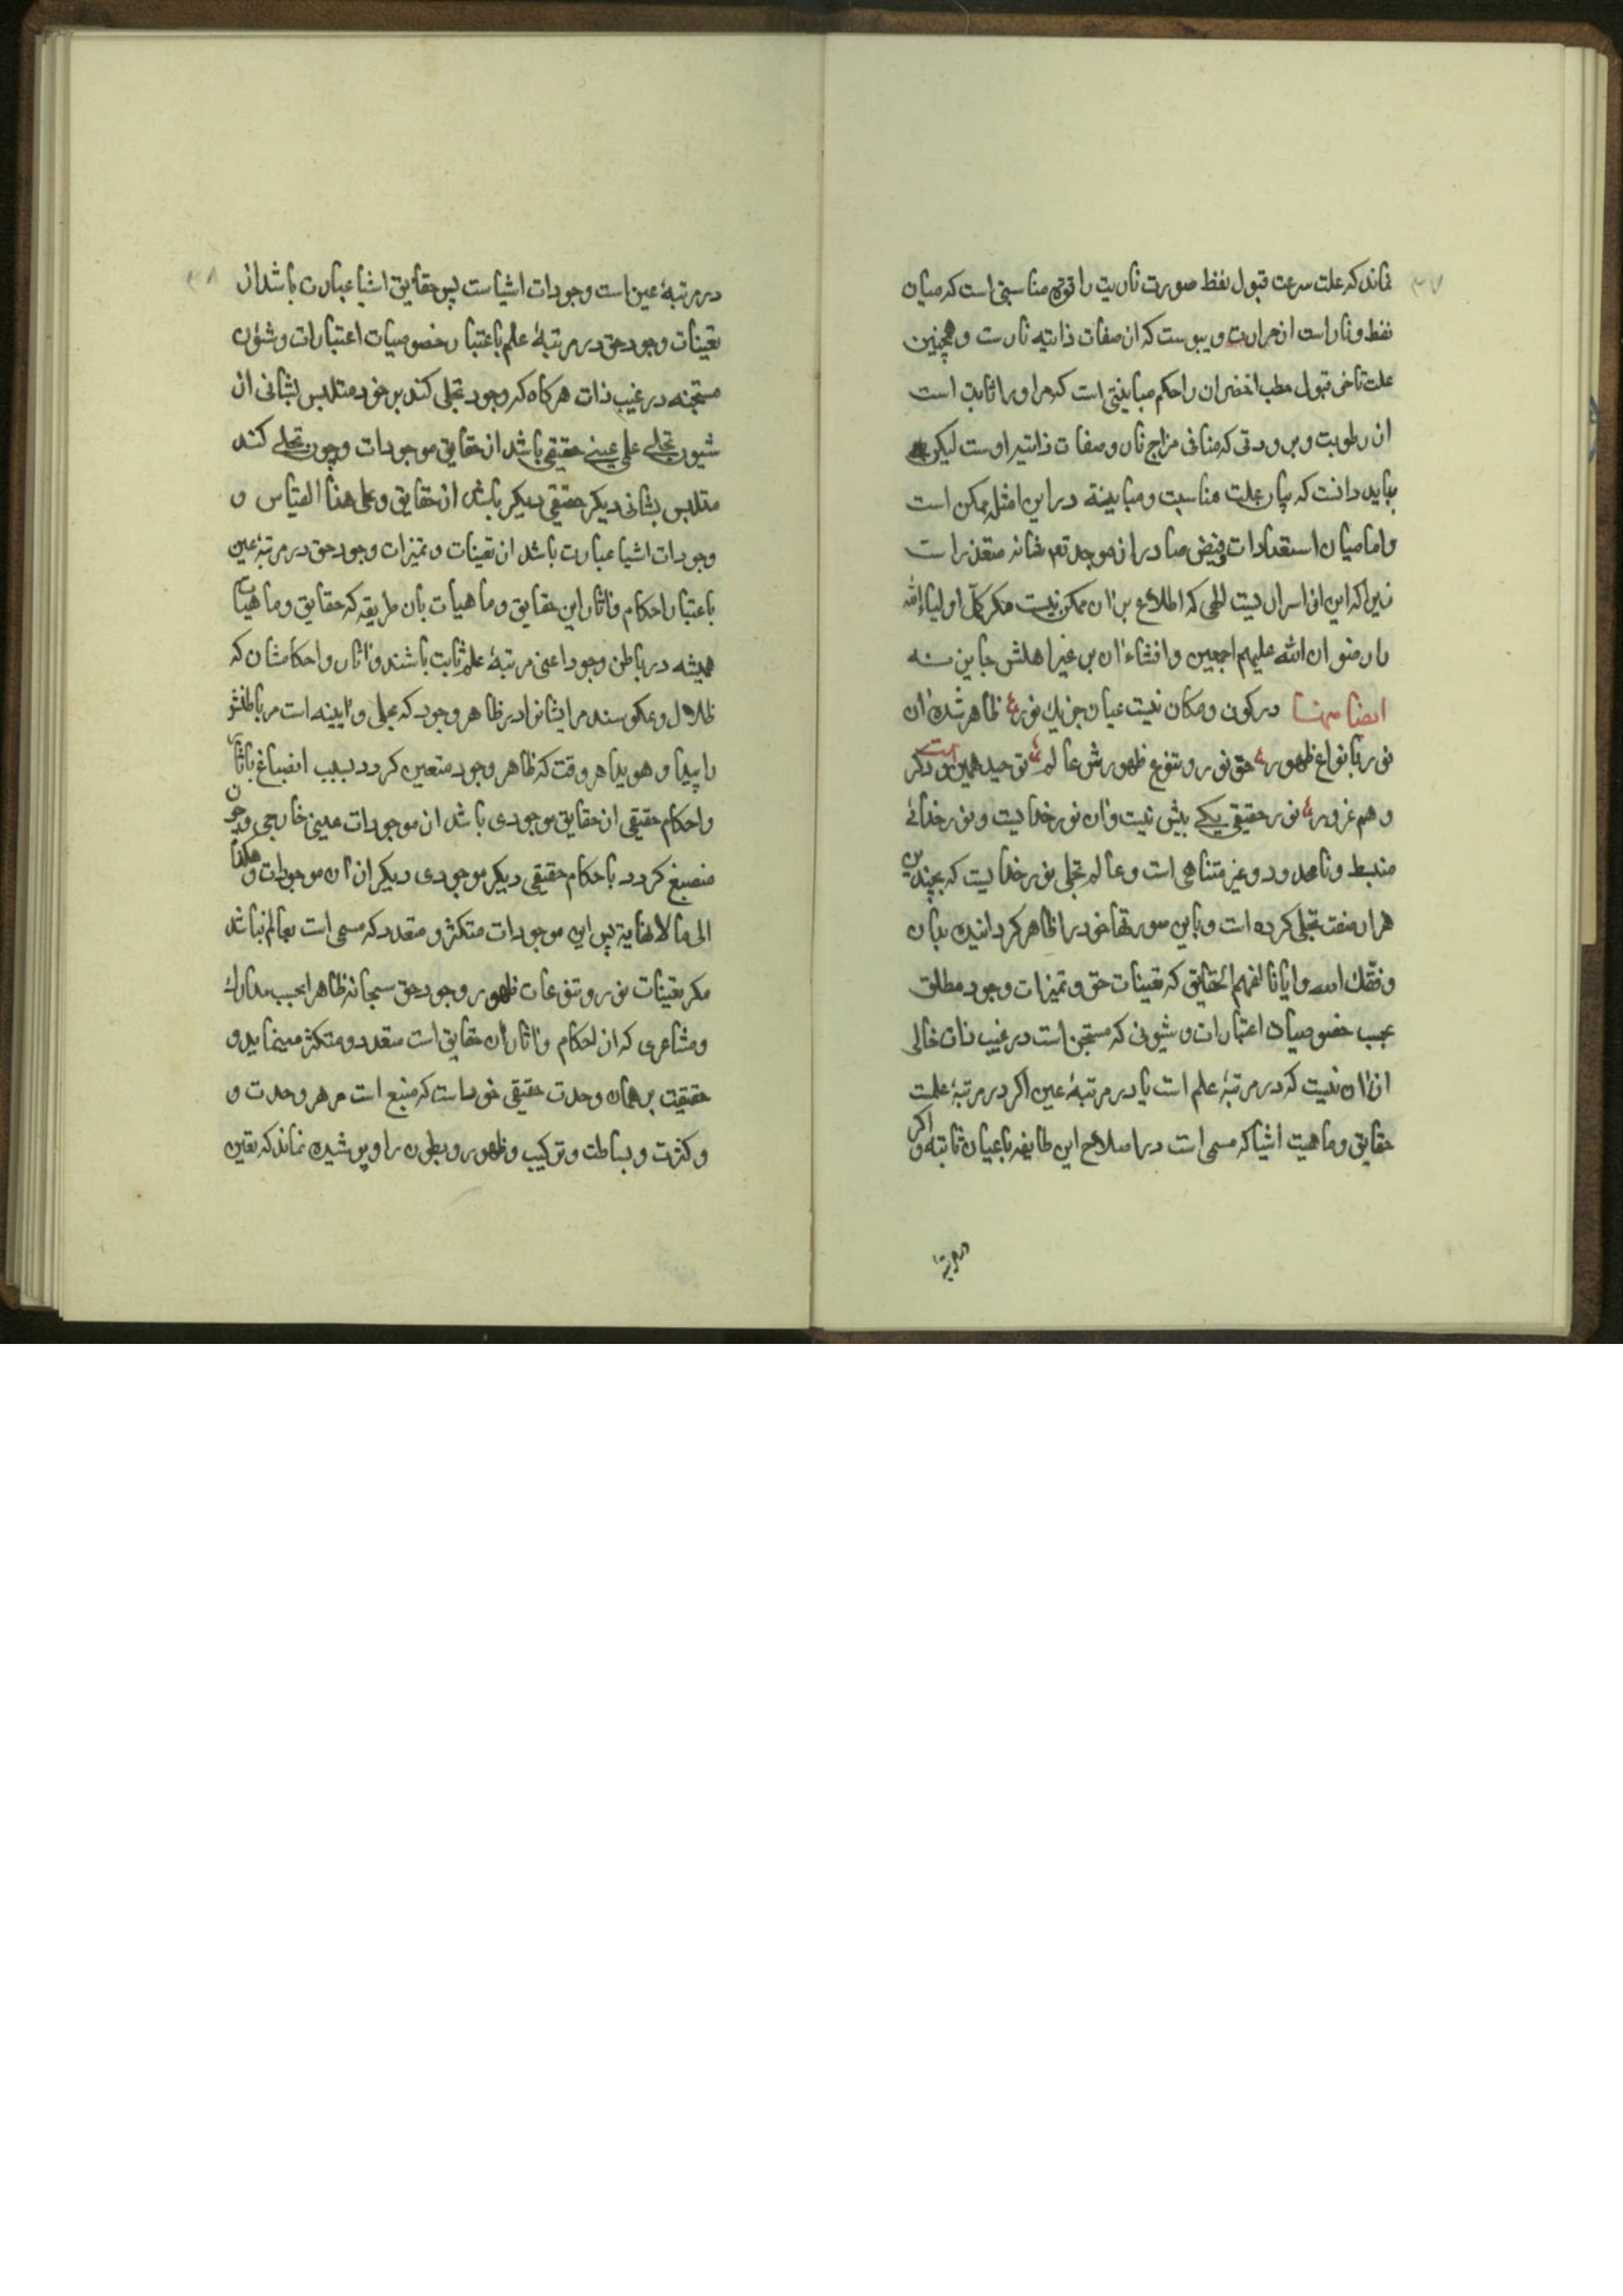 ۳۷
نماند که علت سرعت قبول نفط صورت ناریت را قوة مناسبتی است که میان
نفط و نار است از حرارت و یبوست که از صفات ذاتیه نارست و همچنین
علت تاخر قبول حطب اخضر ان را حکم مباینتی است که مر او را ثابت است
از رطوبت و برودتی که منافی مزاج نار و صفات ذاتیه اوست لیکن
بباید دانست که بیان علت مناسبت و مباینة در این امثله ممکن است
و اما میان استعدادات و فیض صادر از موجد تعم شانه متعذر است
زیرا که این از اسرار یست الهی که اطلاع بر ان ممکن نیست مگر کمّل اولیاء الله
را رضوان الله علیهم اجمعین و افشاء ان بر غیر اهلش جایز نه
ایضا منها در کون و مکان نیست عیان جز یک نور ع ظاهر شده ان
نور بانواع ظهور ع حق نور و تنوع ظهورش عالم ع توحید همین است دگر
وهم غرور ع نور حقیقی یکے بیش نیست و ان نور خدا یست و نور خدائے
منبسط و نامحدود و غیر متناهی است و عالم تجلی نور خدا یست که بچندین
هزار صفت تجلی کرده است و باین صورتها خود را ظاهر گردانیده بدان
وفقک الله و ایانا لفهم الحقایق که تعینات حق و تمیزات وجود مطلق
بحسب خصوصیات اعتبارات و شیونی که مستجن است در غیب ذات خالی
از ان نیست که در مرتبۀ علم است یا در مرتبۀ عین اگر در مرتبۀ علمست
حقایق و ماهیت اشیا که مسمی است در اصلاح این طایفه باعیان ثابته و اگر
در مرتبۀ
۳۸
در مرتبۀ عین است وجودات اشیاست پس حقایق اشیا عبارت باشد از
تعینات وجود حق در مرتبۀ علم باعتبار خصوصیات اعتبارات و شئون
مستجنه در غیب ذات هرگاه که وجود تجلی کند بر خود متلبس بشانی از
شیون تجلے علی عینے حقیقی باشد از حقایق موجودات و چون تجلے کند
متلبس بشانی دیگر حقیقی دیگر باشد از حقایق و علی هذا القیاس و
وجودات اشیا عبارت باشد از تعینات و تمیزات وجود حق در مرتبۀ عین
باعتبار احکام و اثار این حقایق و ماهیات بان طریقه که حقایق و ماهیات
همیشه در باطن وجود اعنی مرتبۀ علم ثابت باشند و اثار و احکامشان که
ظلال و عکوسند مر ایشانرا در ظاهر وجود که مجلی و ایینه است مر باطنش
را پیدا و هویدا هر وقت که ظاهر وجود متعین کردد بسبب انصباغ باثار
و احکام حقیقی از حقایق موجودی باشد از موجودات عینی خارجی و چون
منصبغ کردد باحکام حقیقی دیگر موجودی دیگر از ان موجودات و هکذا
الی ما لا نهایة پس این موجودات متکثر و متعدد که مسمی است بعالم نباشد
مکر تعینات نور و تنوعات ظهور وجود حق سبحانه ظاهرا بحسب مدارک
و مشاعری که از احکام و اثار ان حقایق است متعدد و متکثر مینماید و
حقیقت بر همان وحدت حقیقی خود است که منبع است مر هر وحدت و
و کثرت و بساطت و ترکیب و ظهور و بطون را و پوشیده نماند که تعین